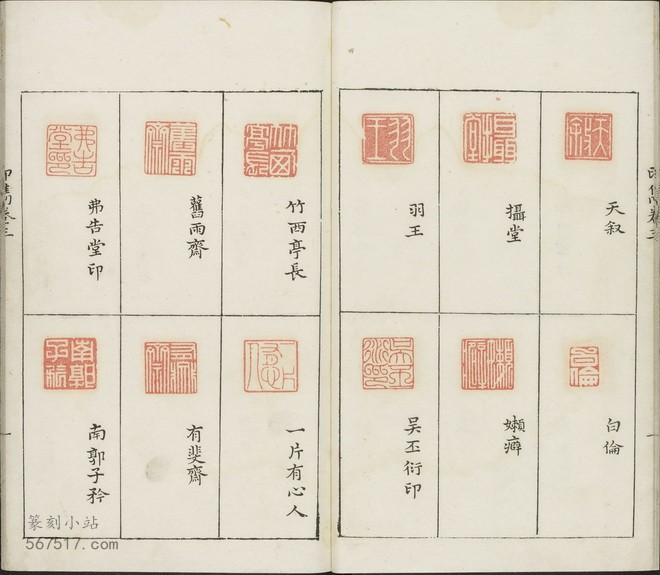 天叙
攝堂
羽王
白倫
嬾癖
吴丕衍印
竹西亭長
舊雨齋
弗告堂印
一片有心人
有斐齋
南郭子矜
篆刻小站
567517.com